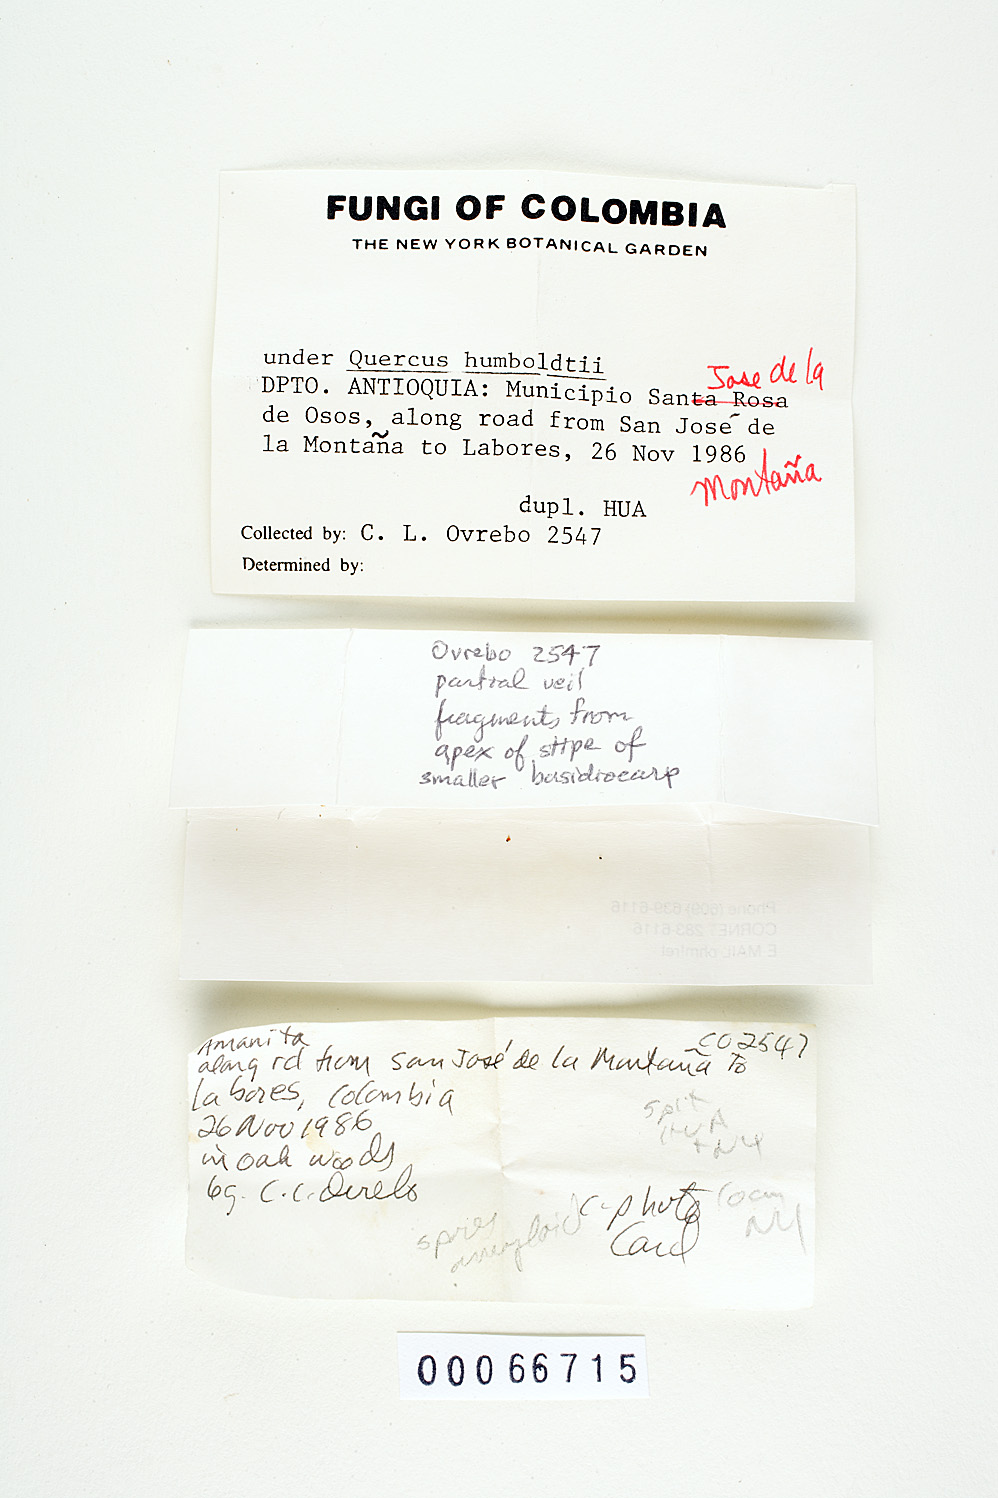 FUNGI OF COLOMBIA
THE NEW YORK BOTANICAL GARDEN
under Quercus humboldtii
Jose de la
DPTO. ANTIOQUIA: Municipio Santa Rosa
de Osos, along road from San José de
la Montaña to Labores, 26 Nov 1986
Montaña
dupl. HUA
Collected by: C. L. Ovrebo 2547
Determined by:
Ovrebo 2547
partial veil
fragments from
apex of stipe of
smaller basidiocarp
Phone (609) 639-6116
CORNET 283-6116
E MAIL
Amanita
CO2547
along rd from San José de la Montaña to
Labores, Colombia
26 Nov 1986
split
HUA
+ NY
in oak woods
by. C.L. Ovrebo
c-photo
Card
spores
amyloid
NY
00066715